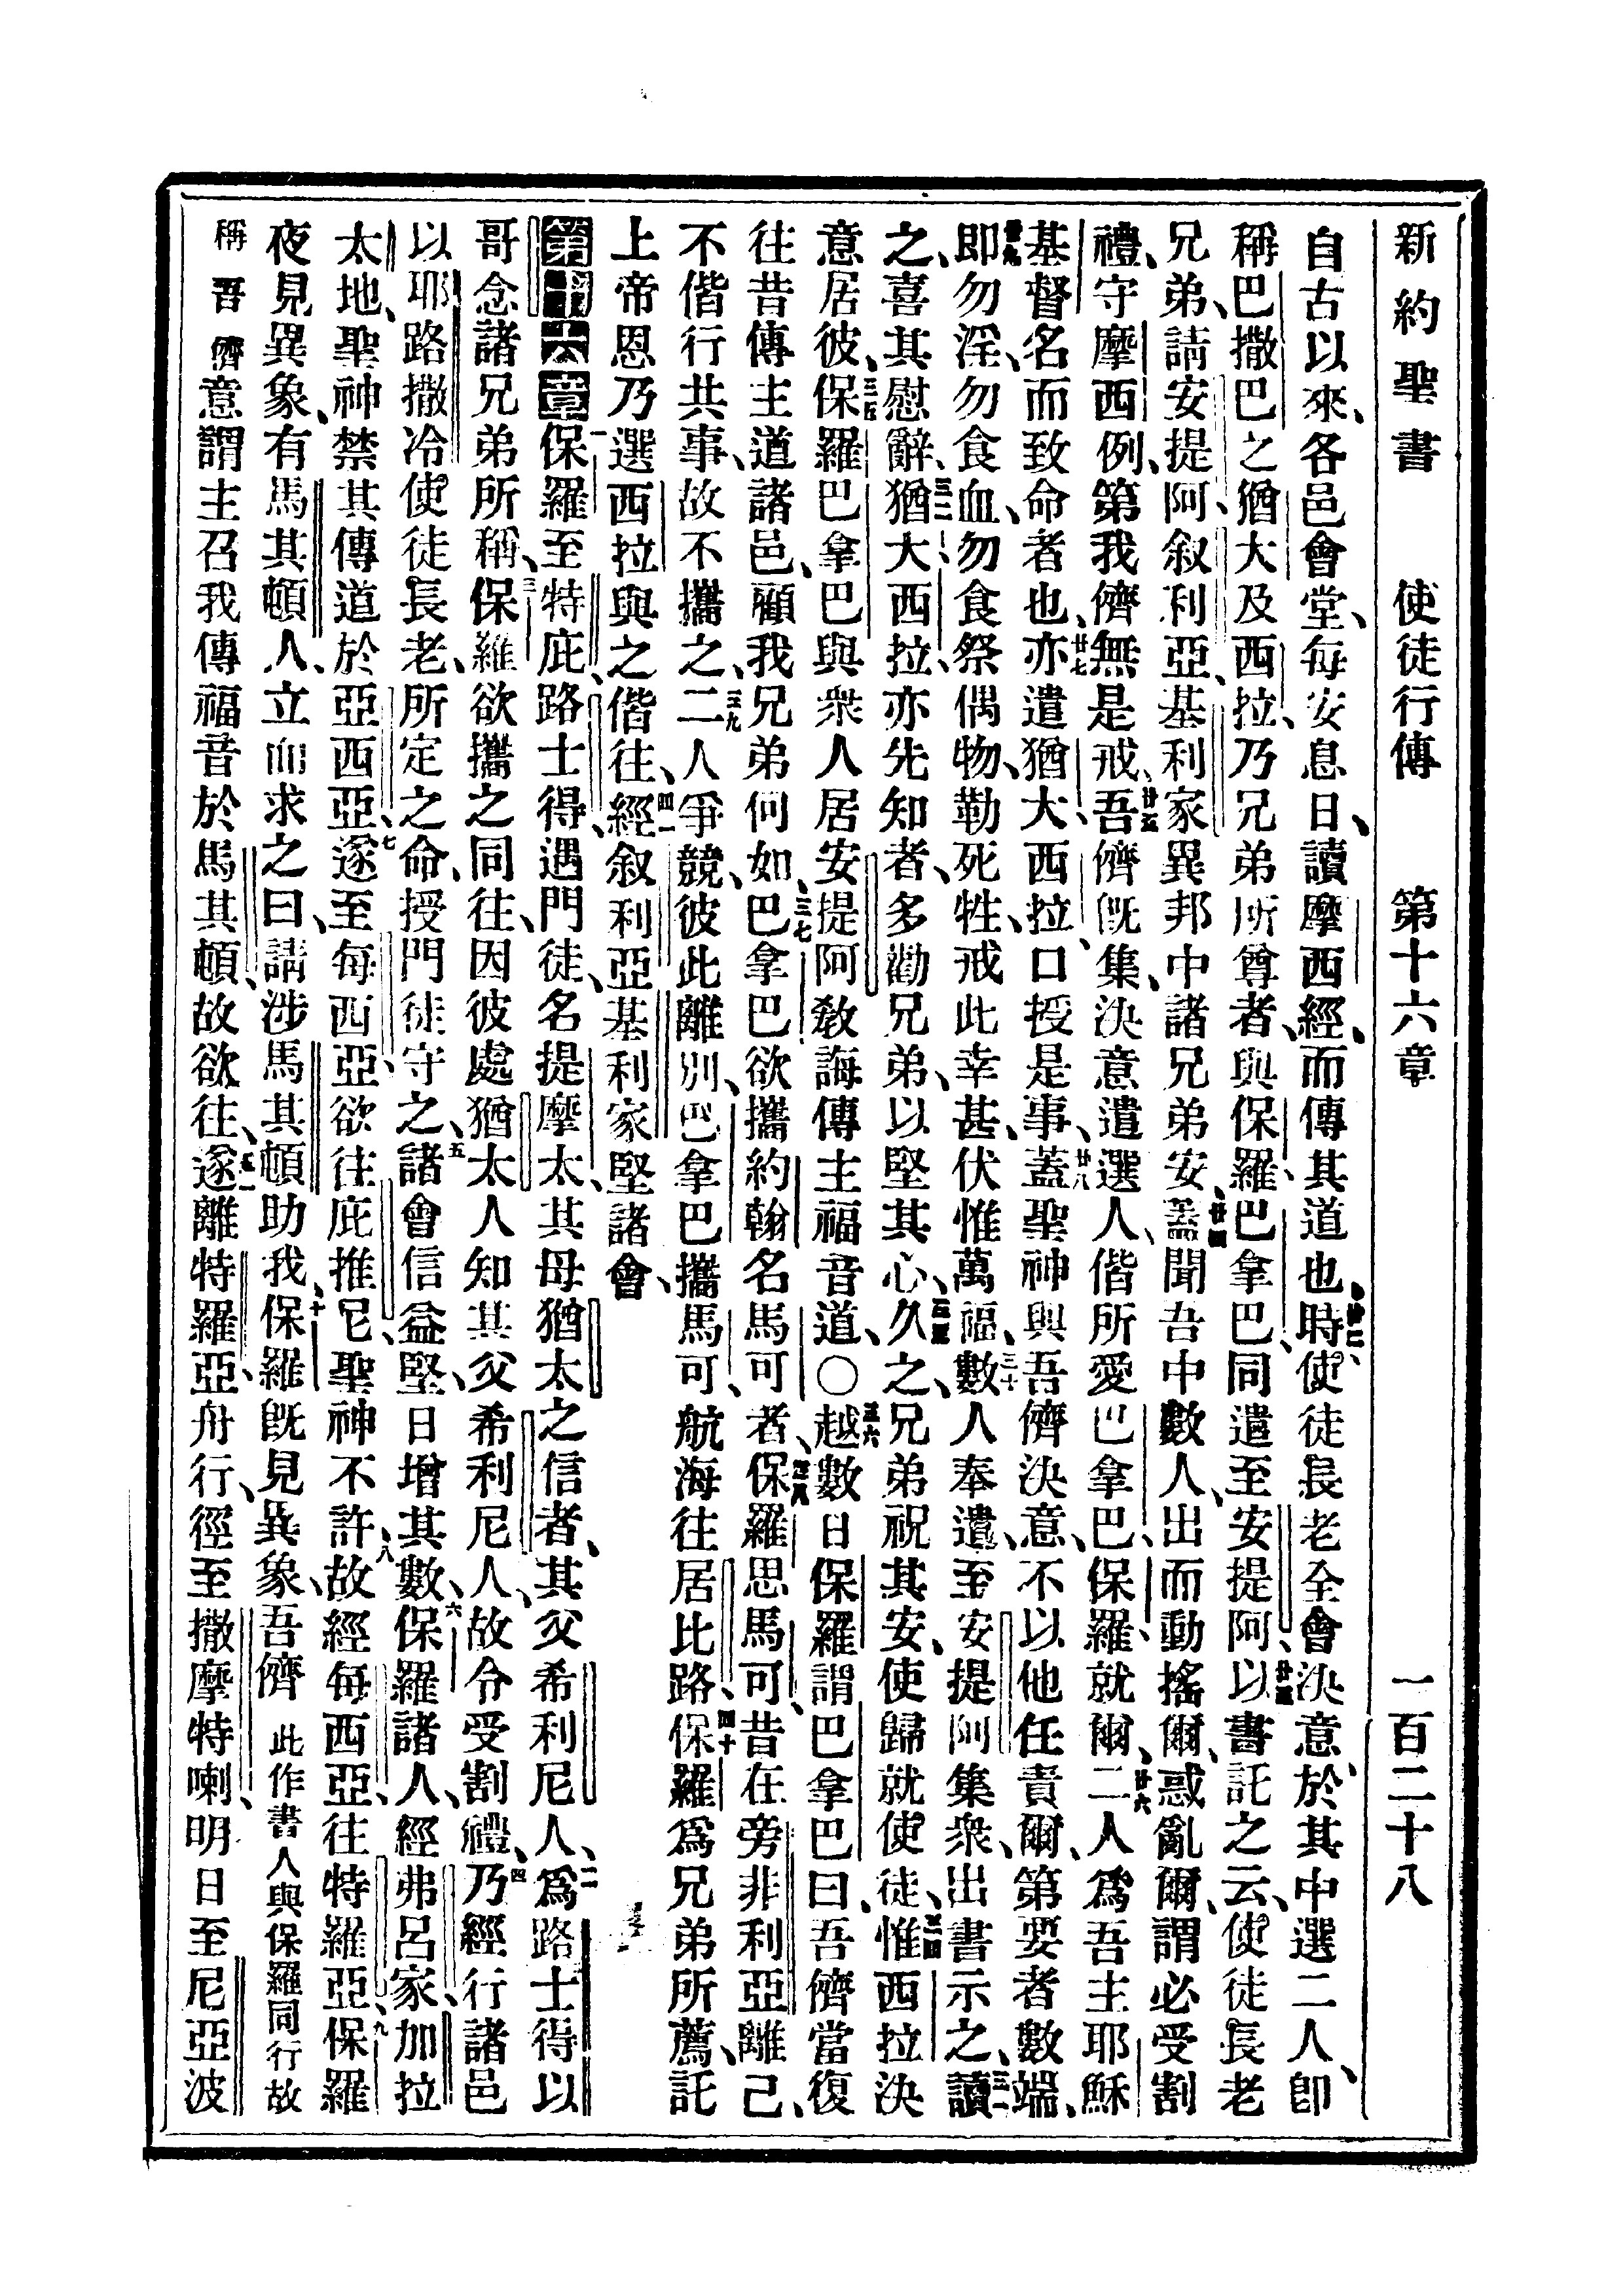 新約聖書 使徒行傳 第十六章 一百二十八
自古以來、各邑會堂、每安息日、讀摩西經、而傳其道也、廿二時、使徒長老全會決意、於其中選二人、卽
稱巴撒巴之猶大及西拉、乃兄弟所尊者、與保羅巴拿巴、同遣至安提阿、廿三以書託之云、使徒長老
兄弟、請安提阿、敘利亞、基利家異邦中諸兄弟安、廿四蓋聞吾中數人、出而動搖爾、惑亂爾、謂必受割
禮、守摩西例、第我儕無是戒、廿五吾儕旣集、決意遣選人、偕所愛巴拿巴、保羅就爾、廿六二人爲吾主耶穌
基督名而致命者也、廿七亦遣猶大、西拉、口授是事、廿八蓋聖神與吾儕決意、不以他任責爾、第要者數端、
廿九卽勿淫、勿食血、勿食祭偶物、勒死牲、戒此幸甚、伏惟萬福、三十數人奉遣、至安提阿集衆、出書示之、三一讀
之、喜其慰辭、三二猶大西拉、亦先知者、多勸兄弟、以堅其心、三三久之、兄弟祝其安、使歸就使徒、三四惟西拉決
意居彼、三五保羅巴拿巴與衆人居安提阿、敎誨傳主福音道、〇三六越數日保羅謂巴拿巴曰、吾儕當復
往昔傳主道諸邑、顧我兄弟何如、三七巴拿巴欲攜約翰名馬可者、三八保羅思馬可、昔在旁非利亞離己、
不偕行共事、故不攜之、三九二人爭競、彼此離別、巴拿巴攜馬可、航海往居比路、四十保羅爲兄弟所薦、託
上帝恩、乃選西拉與之偕往、四一經敘利亞基利家、堅諸會、
第十六章 一保羅至特庇、路士得、遇門徒、名提摩太、其母猶太之信者、其父希利尼人、二爲路士得以
哥念諸兄弟所稱、三保羅欲攜之同往、因彼處猶太人知其父希利尼人、故令受割禮、四乃經行諸邑
以耶路撒冷使徒長老、所定之命、授門徒守之、五諸會信益堅、日增其數、六保羅諸人、經弗呂家、加拉
太地、聖神禁其傳道於亞西亞、七遂至每西亞、欲往庇推尼、聖神不許、八故經每西亞、往特羅亞、九保羅
夜見異象、有馬其頓人、立而求之曰、請涉馬其頓助我、十保羅旣見異象、吾儕此作書人與保羅同行故
稱吾儕意謂主召我傳福音於馬其頓、故欲往、十一遂離特羅亞、舟行、徑至撒摩特喇、明日至尼亞波